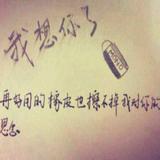 我想你了
再好用的橡皮也擦不掉我对你的
思念